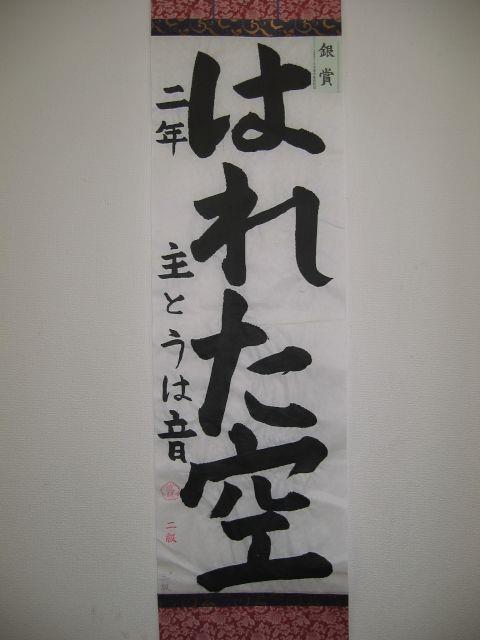 銀賞
はれた空
二年 主とうは音
二級